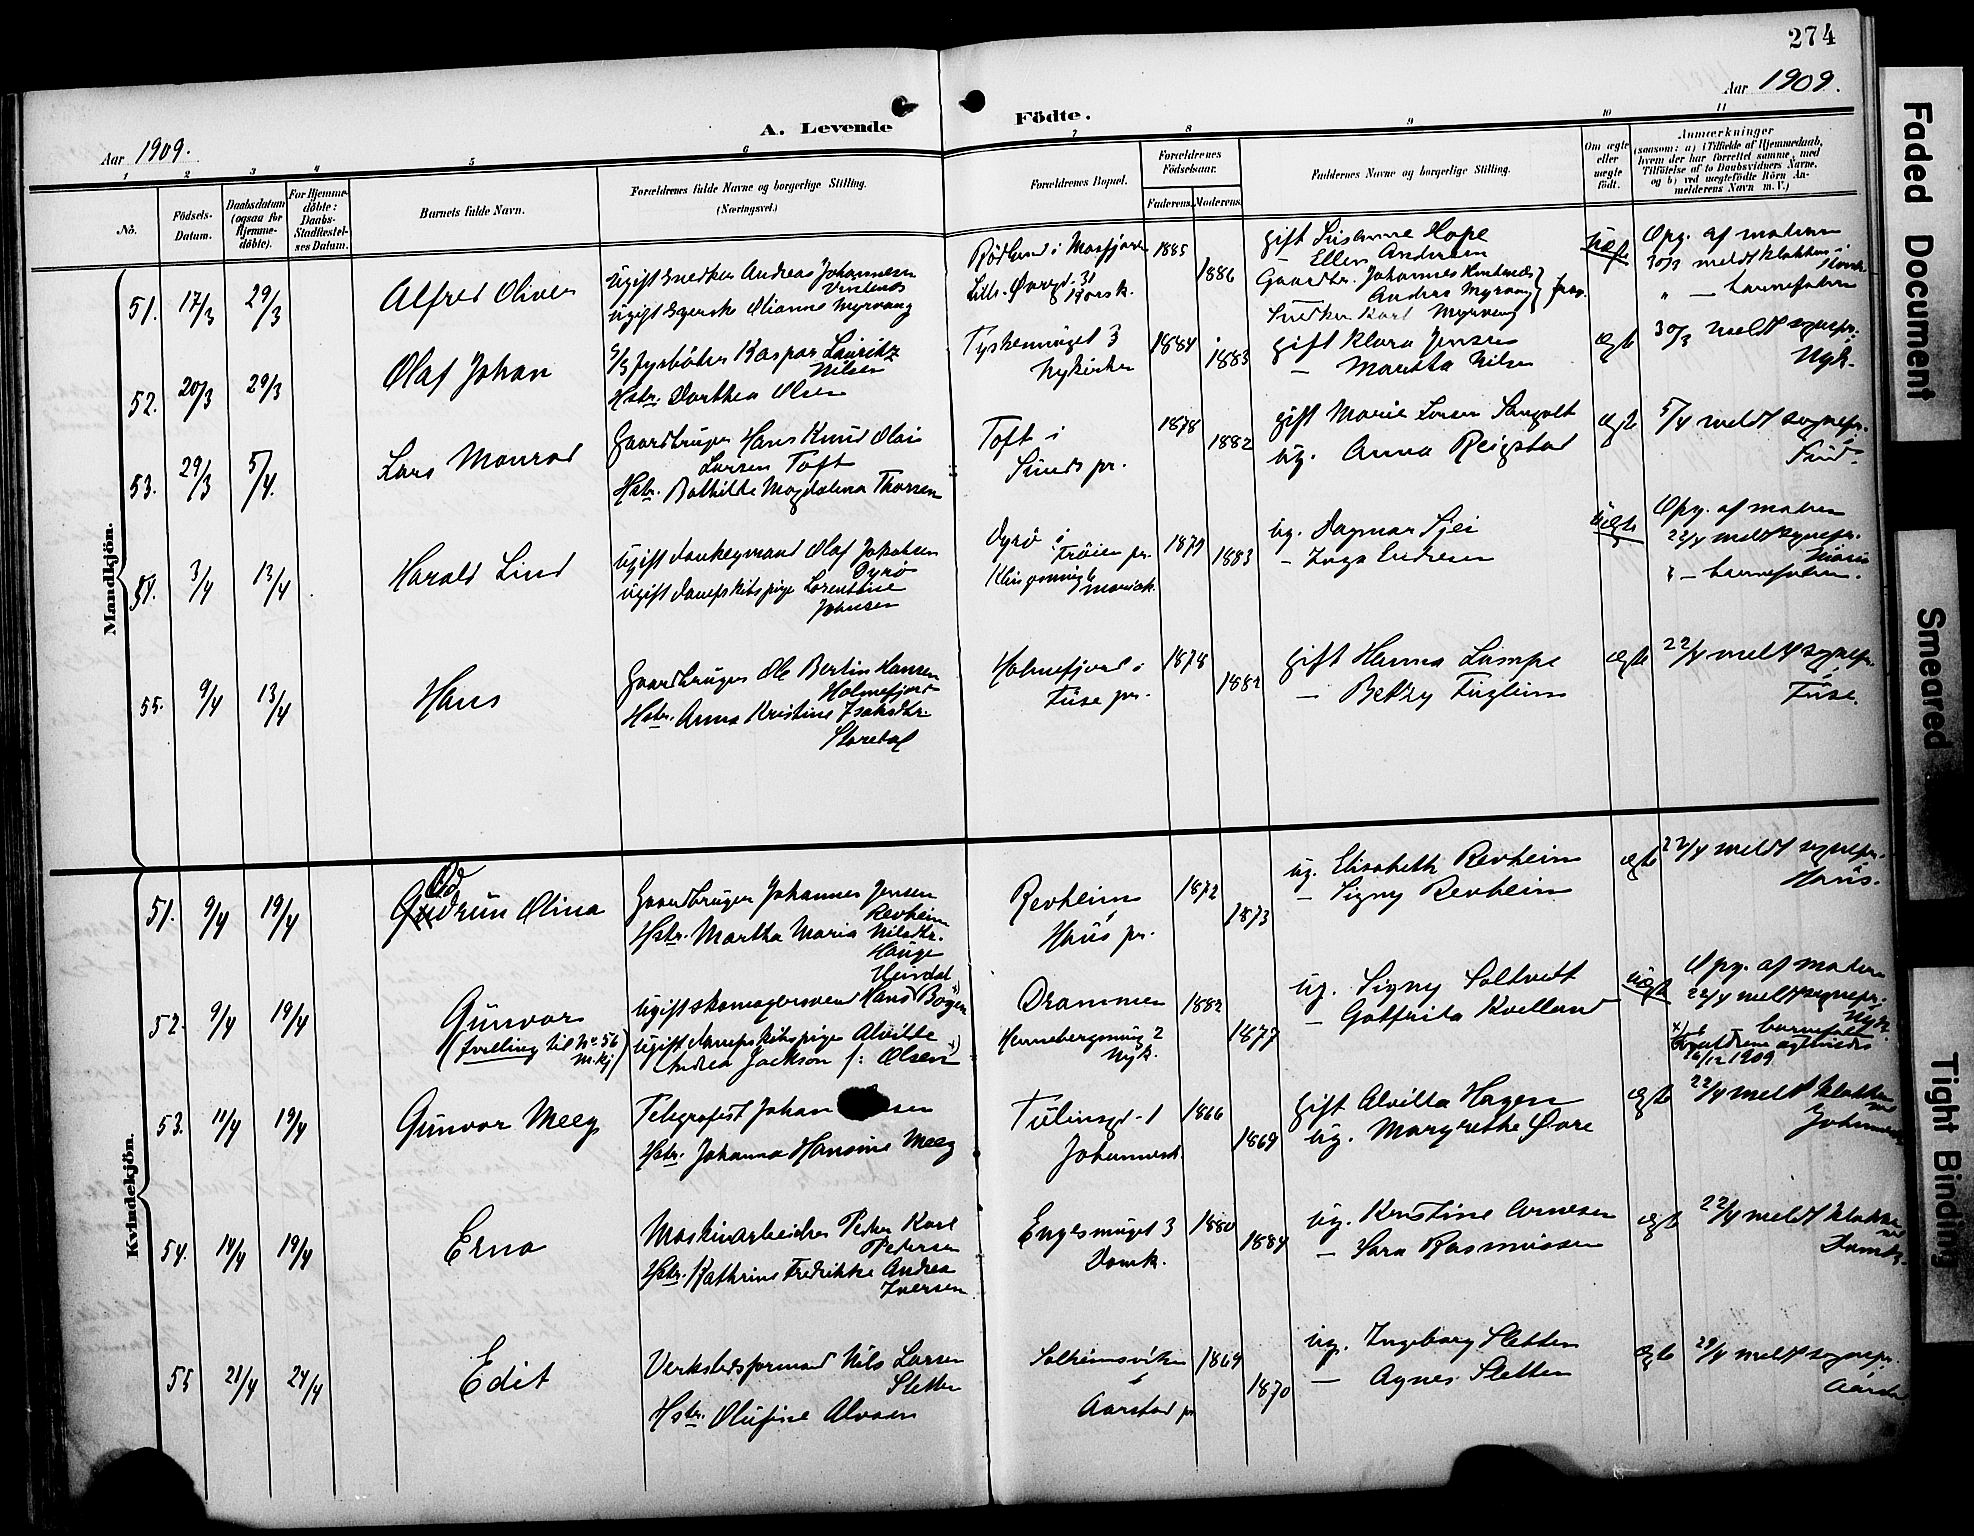 274
Aar 1909.
Aar 1909.
A. Levende Födte.
1 2 3 4 5 6 7 8 9 10 11
No.
Födsels-
Datum.
Daabsdatum
(ogsaa for
Hjemme-
döbte).
For Hjemme-
döbte:
Daabs-
Stadfæstel-
ses Datum.
Barnets fulde Navn.
Forældrenes fulde Navne og borgerlige Stilling.
(Næringsvei.)
Forældrenes Bopæl.
Forældrenes
Födselsaar.
Faderens. Moderens.
Faddernes Navne og borgerlige Stilling.
Om ægte
eller
uægte
födt.
Anmærkninger
(saasom: a) i Tilfælde af Hjemmedaab,
hvem der har forrettet samme, med
Tilföielse af to Daabsvidners Navne,
og b) ved uægtefödte Börn An-
melderens Navn m. V.)
Mandkjön.
51. 17/3 29/3 Alfred Oliver
ugift snedker Andreas Johannesen
ugift syerske Olianna Myrvang
1885 1886
gift Susanne Hope
— Ellen Andersen
Gaardbr. Johannes
Andreas Myrvang
Snedker Karl Myrvang
uægte
Opg. af moderen
30/3 meldt klokkeren i
" — barnefaderen
52. 20/3 29/3 Olaf Johan
s/s fyrbøter Kaspar Lauritz
Nilsen
Hstr. Dorthea Olsen
Tyskesmuget 3
Nykirken
1884 1883
gift Klara Jensen
— Martha Nilsen
ægte
30/3 meldt sognepr.
Nyk.
53. 29/3 5/4. Lars Monrad
Gaardbruger Hans Knud Olai
Larsen Toft
Hstr. Bathilde Magdalena Thorsen
Toft i
Sunds pr.
1878 1882
gift Marie Larsen Sangolt
ug. Anna Reigstad
ægte
5/4 meldt sognepr.
i Sund.
54. 3/4 13/4 Harald Lind
ugift Olaf Jakobsen
Dyrø
ugift dampskibspige Lorentine
Johnsen
Dyrø i
Trøien pr.
1879 1883
ug. Dagmar
— Inga Endresen
uægte
Opg. af moderen
22/4 meldt sognepr.
" — barnefaderen.
55. 9/4 13/4 Hans
Gaardbruger Ole Bertin Hansen
Holmefjord
Hstr. Anna Kristine Isaksdtr.
Storedal
Holmefjord i
Fuse pr.
1878 1882
gift Hanna Lampe
— Betzy Fuglein
ægte
22/4 meldt sognepr.
i Fuse.
Kvindekjön.
51. 9/4 19/4 Gudrun Olina
Gaardbruger Johannes Jensen
Revheim
Hstr. Martha Maria Nilsdtr.
Hauge
Revheim
i Haus pr.
1872 1873
ug. Elisabeth Revheim
— Signy Revheim
ægte
22/4 meldt sognepr.
Haus.
52. 9/4 19/4 Gunvor
(tvilling til No. 56
m.kj)
Heirdal
ugift skomagersvend Hans Bøgen
ugift dampskibspige Alvilde
Andrea Jackson f: Olsen x)
Drammen
Hennebergsmug 2
Nyk.
1882 1877
ug. Signy Soltvedt
— Gotfrida Kvelland
uægte
Opg. af moderen
22/4 meldt sognepr.
Nyk.
— barnefad.
x) Forældrene ægteviedes
/12 1909
53. 11/4 19/4 Gunvor Meeg
Telegrafist Johan sen
Hstr. Johanna Hansine Meeg
Tulinsgd. 1
Johannesk.
1866 1869
gift Alvilla Hagen
ug. Margrethe Øvre
ægte
22/4 meldt klokkeren
ved
Johannesk.
54. 14/4 19/4 Erna
Maskinarbeider Peter Karl
Petersen
Hstr. Kathrine Fredrikke Andrea
Iversen
Engesmuget 3
Domk.
1880 1884
ug. Kristine Arnesen
— Sara Rasmussen
ægte
22/4 meldt klokkeren
ved
Domk.
55 21/4 24/4 Edit
Verkstedsformand Nils Larsen
Sletten
Hstr. Olufine Alvsen
Solheimsviken
i
Aarstad pr
1869 1870
ug. Ingeborg Sletten
— Agnes Sletten
ægte
29/4 meldt sognepr.
Aarstad
Faded Document
Smeared
Tight Binding